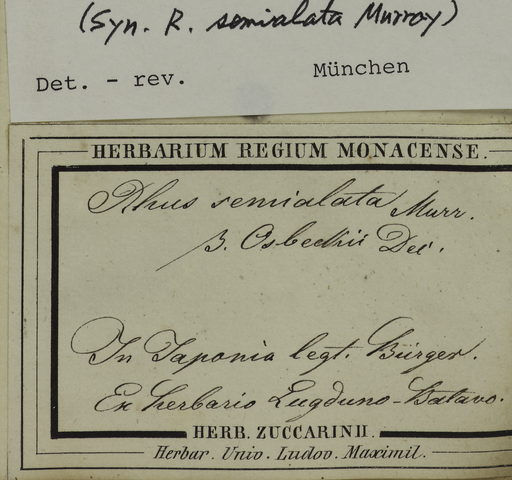 (Syn. R. semialata Murray)
Det. - rev. München
HERBARIUM REGIUM MONACENSE.
Rhus semialata Murr.
β. Osbeckii Dec.
In Japonia legt. Bürger.
Ex herbario Lugduno-Batavo.
HERB. ZUCCARINII.
Herbar. Univ. Ludov. Maximil.